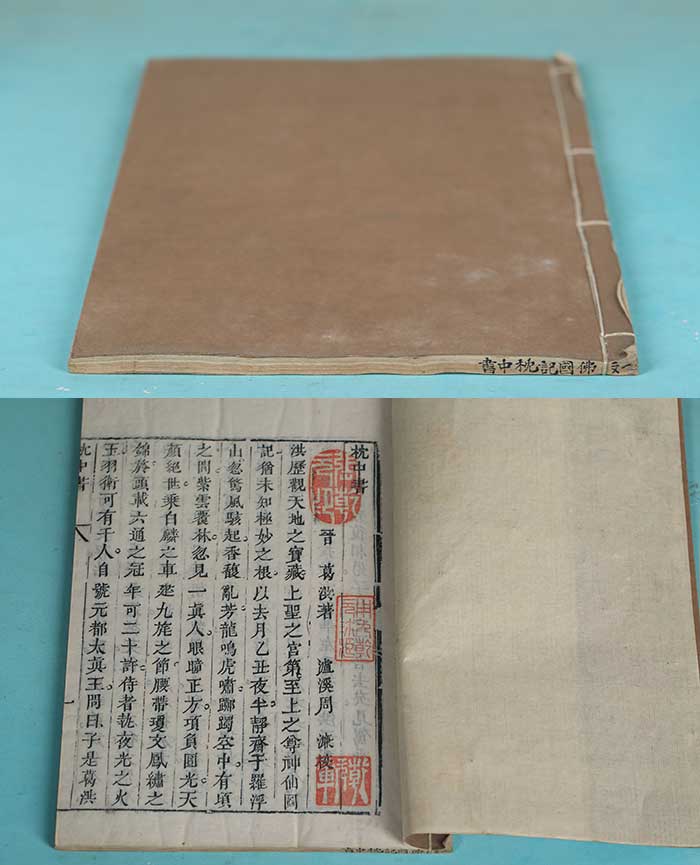 佛國記枕中書
枕中書
晉 葛洪著 瀘溪周 濂校
洪歷觀天地之寶藏上聖之宮第至上之尊神仙圖
記猶未知極妙之根以去月乙丑夜半靜齋于羅浮
山忽驚風駭起香馥亂芳龍鳴虎嘯躑躅空中有頃
之間紫雲覆林忽見一真人眼瞳正方項負圓光天
顏絕世乘白麟之車建九旄之節腰帶瓊文鳳繡之
錦於頭載六通之冠年可二十許侍者執夜光之火
玉羽衛可有千人自號元都太真王問曰子是葛洪
枕中書 一